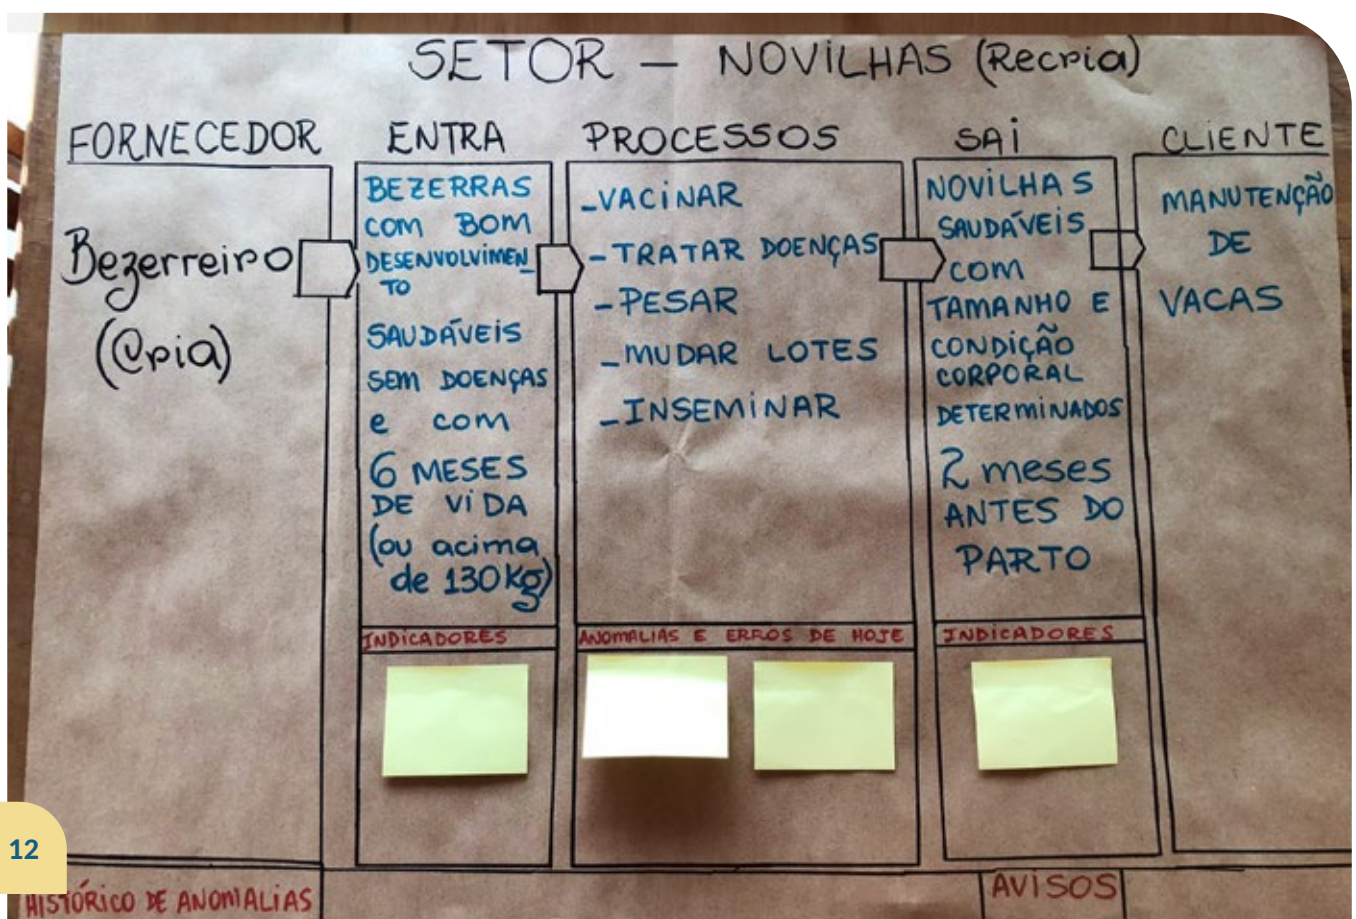 SETOR – NOVILHAS (Recria)
FORNECEDOR
Bezerreiro
(Cria)
ENTRA
BEZERRAS
COM BOM
DESENVOLVIMEN_
TO
SAUDÁVEIS
SEM DOENÇAS
e com
6 MESES
DE VIDA
(ou acima
de 130Kg)
INDICADORES
PROCESSOS
-VACINAR
-TRATAR DOENÇAS
-PESAR
-MUDAR LOTES
-INSEMINAR
ANOMALIAS E ERROS DE HOJE
SAI
NOVILHAS
SAUDÁVEIS
COM
TAMANHO E
CONDIÇÃO
CORPORAL
DETERMINADOS
2 meses
ANTES DO
PARTO
INDICADORES
CLIENTE
MANUTENÇÃO
DE
VACAS
12
HISTÓRICO DE ANOMALIAS
AVISOS